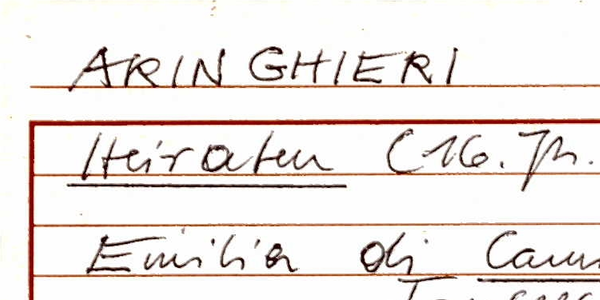 ARINGHIERI
Heiraten (16. Jh.
Emilia di